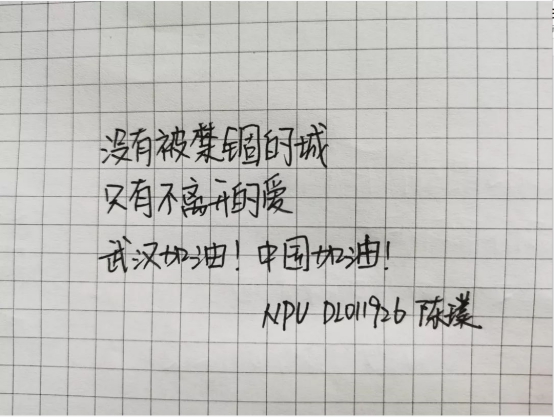 没有被禁锢的城
只有不离开的爱
武汉加油！中国加油！
NPU DL011926 陈璞